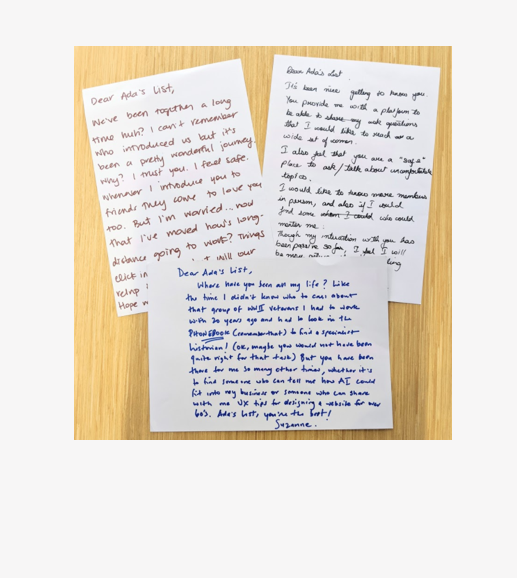 Dear Ada's List,
We've been together a long
time huh? I can't remember
who introduced us but it's
been a pretty wonderful journey.
Why? I trust you. I feel safe.
Whenever I introduce you to
friends they come to love you
too. But I'm worried... now
that I've moved how's long-
distance going to work? Things
click in
relnp
Hope
Dear Ada's List
It's been nice getting to know you.
You provide me with a platform to
be able to share my work questions
that I would like to reach to a
wide set of women.
I also feel that you are a "safe"
place to ask/talk about uncomfortable
topics.
I would like to know more members
in person, and also if I could
find some whom I could who could
mentor me.
Though my interaction with you has
been passive so far, I feel I will
be more
ling
Dear Ada's List,
Where have you been all my life? Like
the time I didn't know who to call about
that group of WWII veterans I had to work
with 20 years ago and had to look in the
PHONEBOOK (remember that) to find a specialist
historian! (OK, maybe you would not have been
quite right for that task) But you have been
there for me so many other times, whether it's
to find someone who can tell me how AI could
fit into my business or someone who can share
with me UX tips for designing a website for over
60s. Ada's List, you're the best!
Suzanne.